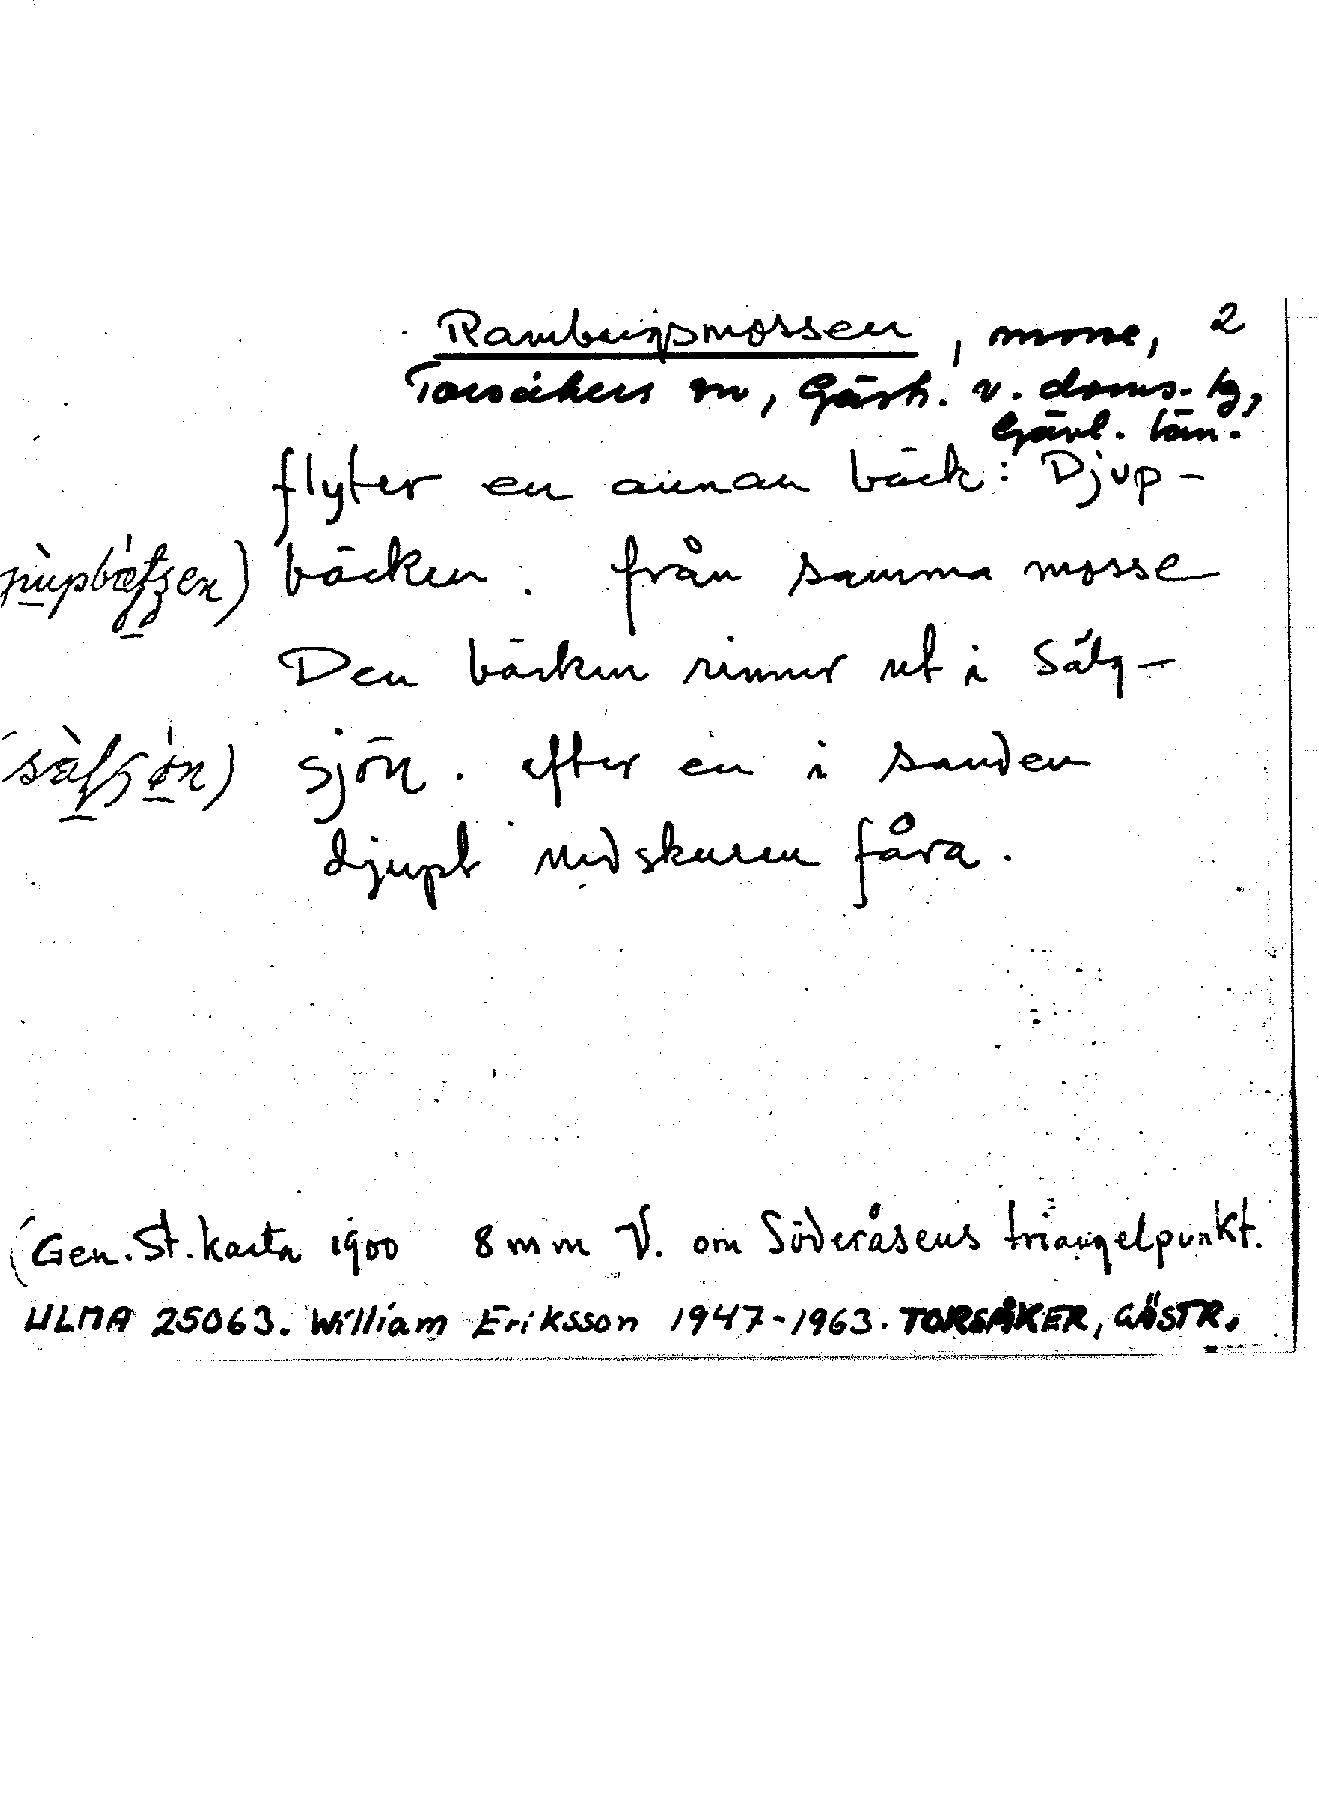 Rambergsmossen, mosse, 2
Torsåkers sn, Gästr. v. doms. tg,
Gävl. län.
flyter en annan bäck: Djup-
bäcken. från samma mosse
Den bäcken rinner ut i Sälg-
sjön. efter en i sanden
djupt nedskuren fåra.
(Gen. St. karta 1900 8 mm V. om Söderåsens triangelpunkt.
ULMA 25063. William Eriksson 1947-1963. TORSÅKER, GÄSTR.